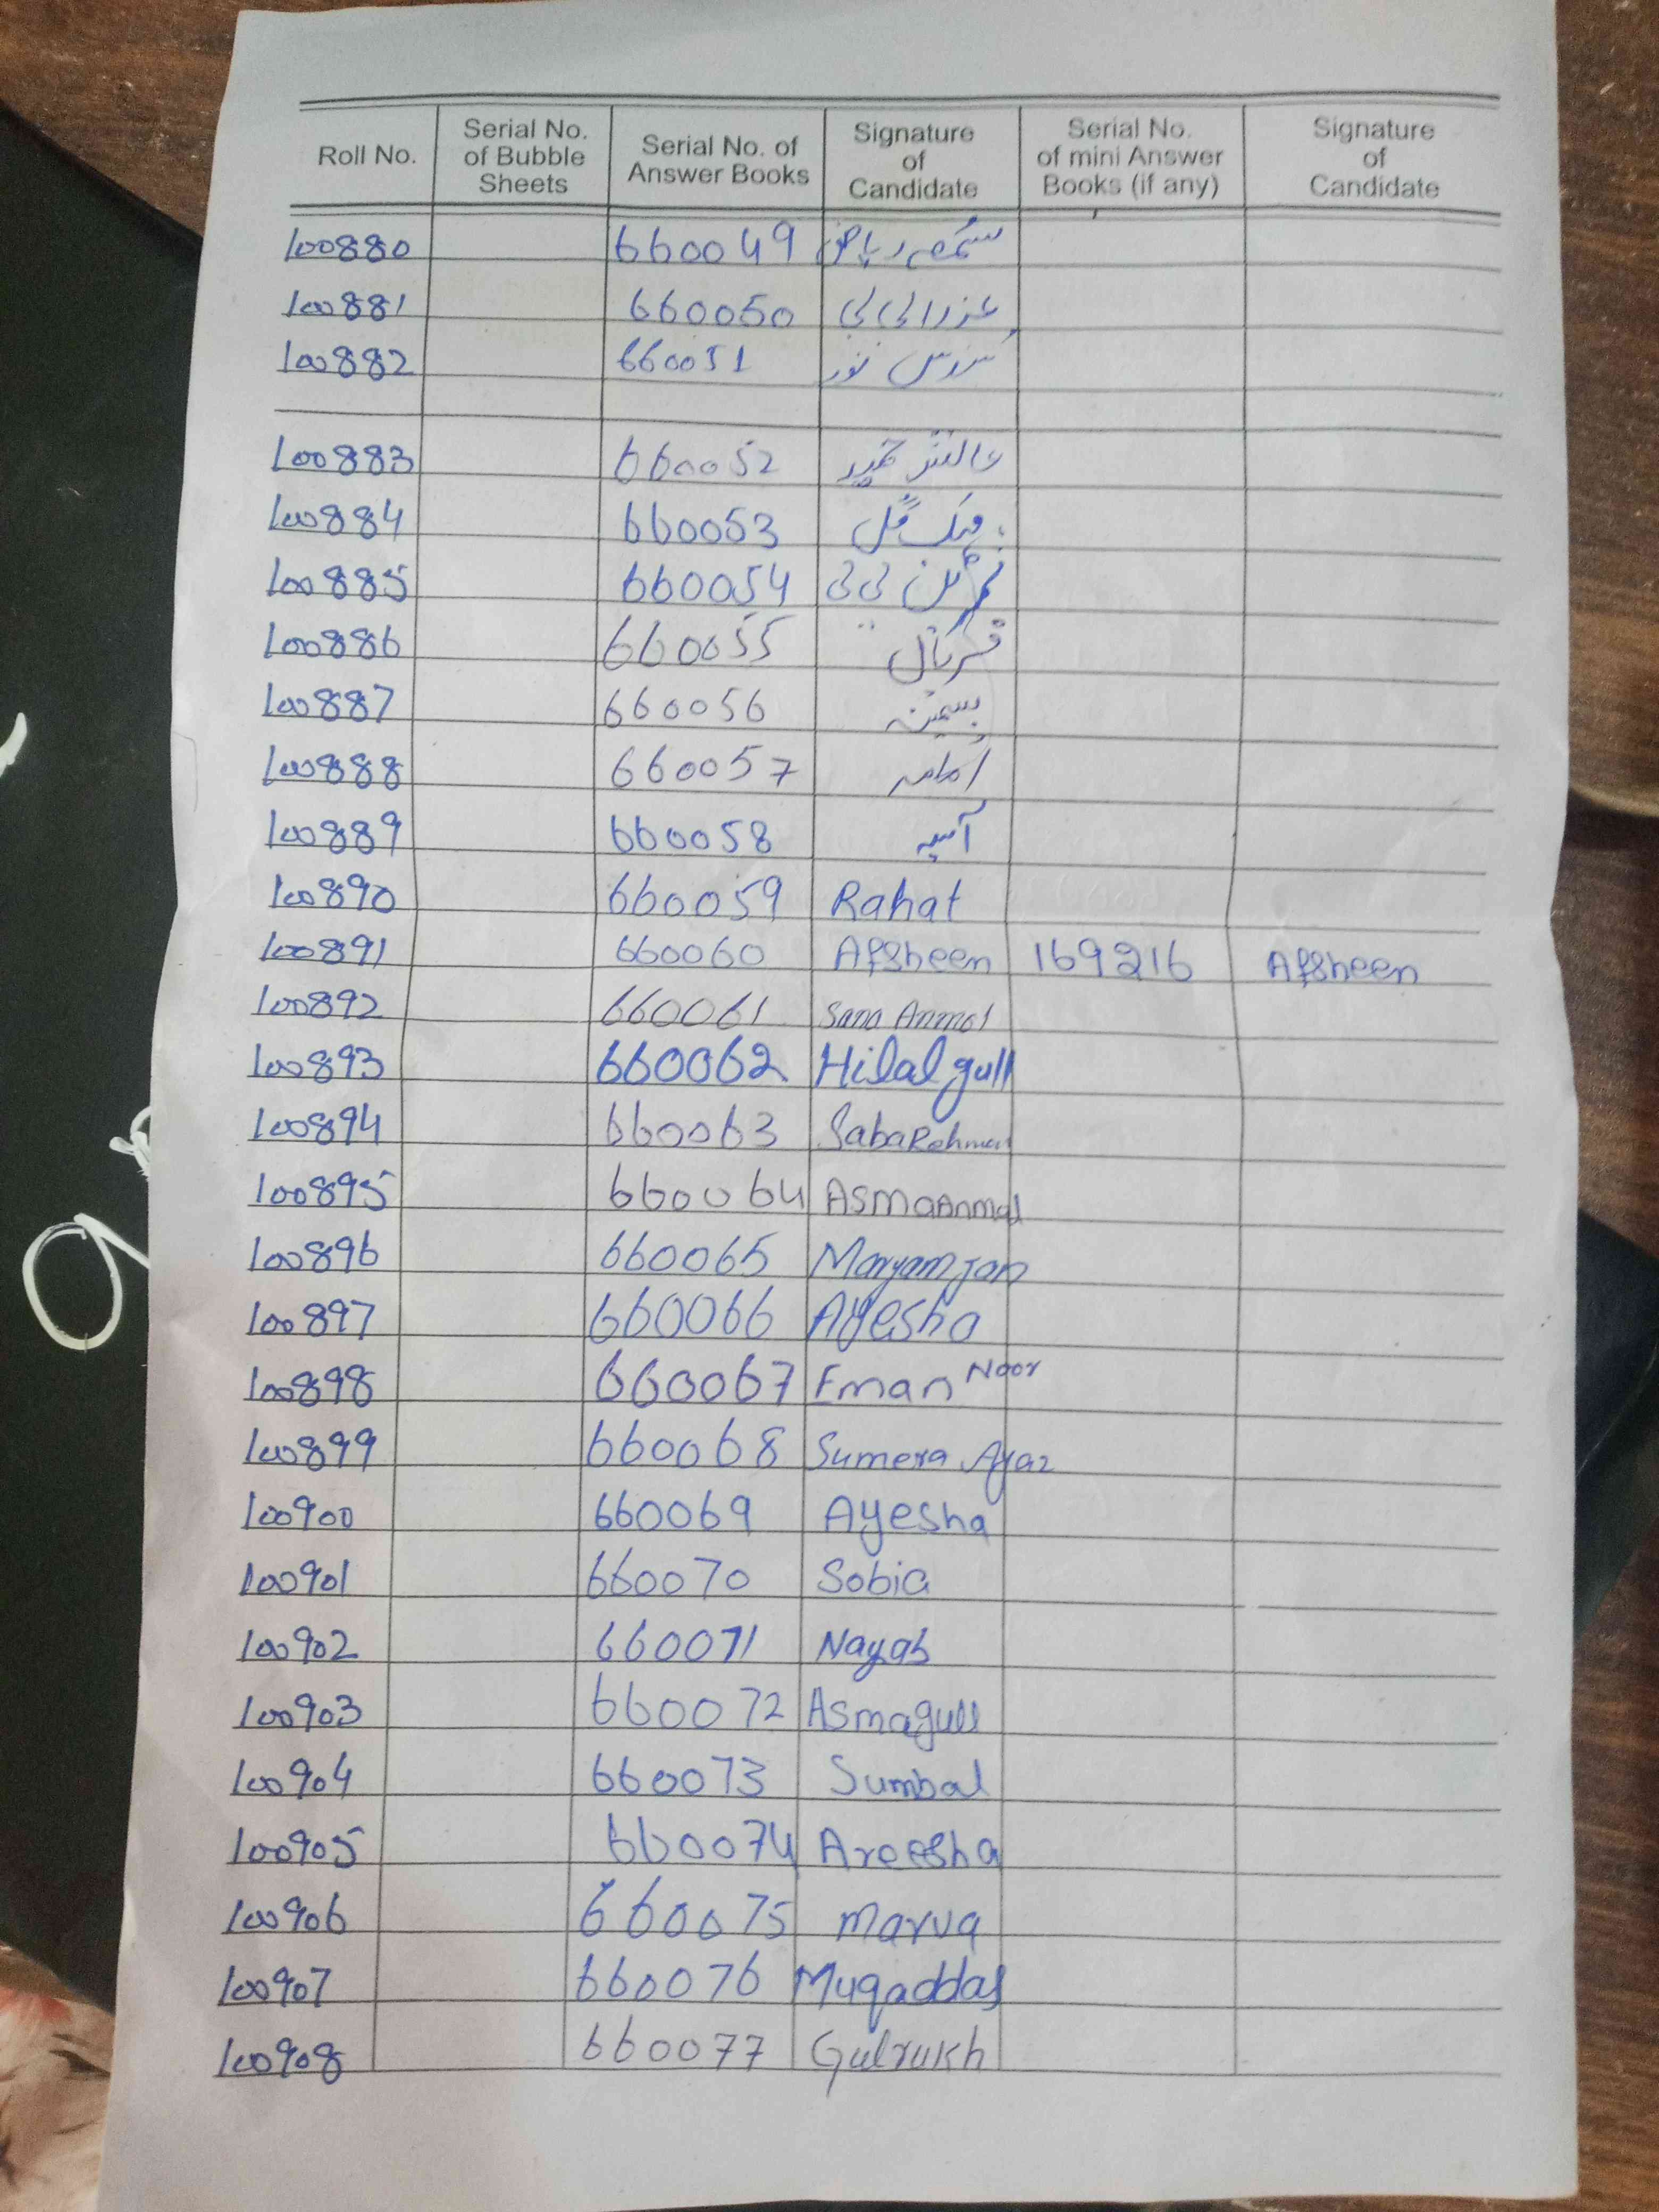 Roll No. Serial No. of Bubble Sheets Serial No. of Answer Books Signature of Candidate Serial No. of mini Answer Books (if any) Signature of Candidate
100880 660049 ریاض
100881 660050 عذرا بی بی
100882 660051 سندس نور
100883 660052
100884 660053 گل
100885 660054 بی بی
100886 660055
100887 660056
100888 660057
100889 660058 آسیہ
100890 660059 Rahat
100891 660060 Afsheen 169216 Afsheen
100892 660061 Sana Anmol
100893 660062 Hilal gull
100894 660063 Saba Rehman
100895 660064 Asma Anmol
100896 660065 Maryam Jan
100897 660066 Ayesha
100898 660067 Eman Noor
100899 660068 Sumera Ayaz
100900 660069 Ayesha
100901 660070 Sobia
100902 660071 Nayab
100903 660072 Asmagull
100904 660073 Sumbal
100905 660074 Areesha
100906 660075 Marva
100907 660076 Muqaddas
100908 660077 Gulrukh